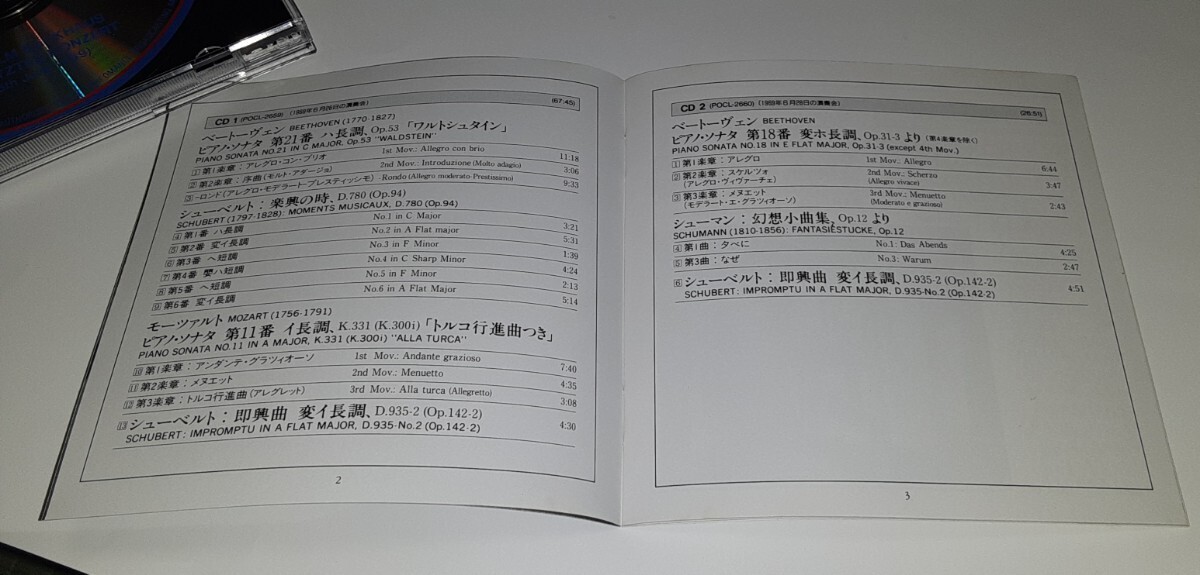 CD 1 (POCL-2659) (1969年6月26日の演奏会) (67:45)
ベートーヴェン BEETHOVEN (1770-1827)
ピアノ・ソナタ 第21番 ハ長調、Op.53 「ワルトシュタイン」
PIANO SONATA NO.21 IN C MAJOR, Op.53 "WALDSTEIN"
1 第1楽章：アレグロ・コン・ブリオ 1st Mov.: Allegro con brio 11:18
2 第2楽章：序曲 (モルト・アダージョ) 2nd Mov.: Introduzione (Molto adagio) 3:06
3 -ロンド (アレグロ・モデラート-プレスティッシモ) -Rondo (Allegro moderato-Prestissimo) 9:33
シューベルト：楽興の時、D.780 (Op.94)
SCHUBERT (1797-1828): MOMENTS MUSICAUX, D.780 (Op.94)
4 第1番 ハ長調 No.1 in C Major 3:21
5 第2番 変イ長調 No.2 in A Flat major 5:31
6 第3番 ヘ短調 No.3 in F Minor 1:39
7 第4番 嬰ハ短調 No.4 in C Sharp Minor 4:24
8 第5番 ヘ短調 No.5 in F Minor 2:13
9 第6番 変イ長調 No.6 in A Flat Major 5:14
モーツァルト MOZART (1756-1791)
ピアノ・ソナタ 第11番 イ長調、K.331 (K.300i) 「トルコ行進曲つき」
PIANO SONATA NO.11 IN A MAJOR, K.331 (K.300i) "ALLA TURCA"
10 第1楽章：アンダンテ・グラツィオーソ 1st Mov.: Andante grazioso 7:40
11 第2楽章：メヌエット 2nd Mov.: Menuetto 4:35
12 第3楽章：トルコ行進曲 (アレグレット) 3rd Mov.: Alla turca (Allegretto) 3:08
13 シューベルト：即興曲 変イ長調、D.935-2 (Op.142-2) 4:30
SCHUBERT: IMPROMPTU IN A FLAT MAJOR, D.935-No.2 (Op.142-2)
2
CD 2 (POCL-2660) (1969年6月28日の演奏会) (26:51)
ベートーヴェン BEETHOVEN
ピアノ・ソナタ 第18番 変ホ長調、Op.31-3 より (第4楽章を除く)
PIANO SONATA NO.18 IN E FLAT MAJOR, Op.31-3 (except 4th Mov.)
1 第1楽章：アレグロ 1st Mov.: Allegro 6:44
2 第2楽章：スケルツォ 2nd Mov.: Scherzo
(アレグロ・ヴィヴァーチェ) (Allegro vivace) 3:47
3 第3楽章：メヌエット 3rd Mov.: Menuetto
(モデラート・エ・グラツィオーソ) (Moderato e grazioso) 2:43
シューマン：幻想小曲集、Op.12 より
SCHUMANN (1810-1856): FANTASIESTUCKE, Op.12
4 第1曲：夕べに No.1: Das Abends 4:25
5 第3曲：なぜ No.3: Warum 2:47
6 シューベルト：即興曲 変イ長調、D.935-2 (Op.142-2)
SCHUBERT: IMPROMPTU IN A FLAT MAJOR, D.935-No.2 (Op.142-2) 4:51
3